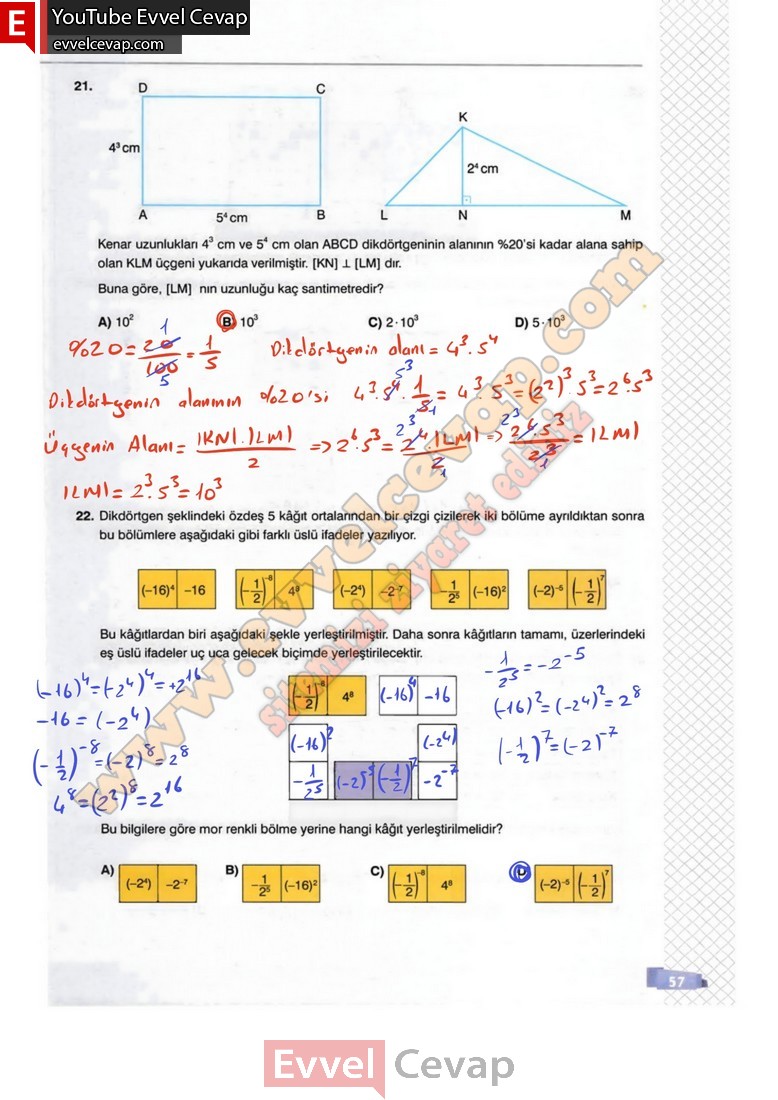 E YouTube Evvel Cevap
evvelcevap.com
21.
D C
K
4³ cm
2⁴ cm
A 5⁴ cm B L N M
Kenar uzunlukları 4³ cm ve 5⁴ cm olan ABCD dikdörtgeninin alanının %20'si kadar alana sahip
olan KLM üçgeni yukarıda verilmiştir. [KN] ⊥ [LM] dır.
Buna göre, [LM] nın uzunluğu kaç santimetredir?
A) 10² B) 10³ C) 2·10³ D) 5·10³
%20 = 20/100 = 1/5 Dikdörtgenin alanı = 4³.5⁴
Dikdörtgenin alanının %20'si 4³.5⁴.1/5 = 4³.5³ = (2²)³.5³ = 2⁶.5³
Üçgenin Alanı = |KN|.|LM|/2 => 2⁶.5³ = 2⁴.|LM|/2 => 2⁶.5³/2³ = |LM|
|LM| = 2³.5³ = 10³
22. Dikdörtgen şeklindeki özdeş 5 kâğıt ortalarından bir çizgi çizilerek iki bölüme ayrıldıktan sonra
bu bölümlere aşağıdaki gibi farklı üslü ifadeler yazılıyor.
(−16)⁴ −16 (−1/2)⁻⁸ 4⁸ (−2⁴) −2⁻⁷ −1/2⁵ (−16)² (−2)⁻⁵ (−1/2)⁷
Bu kâğıtlardan biri aşağıdaki şekle yerleştirilmiştir. Daha sonra kâğıtların tamamı, üzerlerindeki
eş üslü ifadeler uç uca gelecek biçimde yerleştirilecektir.
(−16)⁴ = (−2⁴)⁴ = +2¹⁶
−16 = (−2⁴)
(−1/2)⁻⁸ = (−2)⁸ = 2⁸
4⁸ = (2²)⁸ = 2¹⁶
(−1/2)⁻⁸ 4⁸ (−16)⁴ −16
(−16)² (−2⁴)
−1/2⁵ (−2)⁻⁵ (−1/2)⁷ −2⁻⁷
−1/2⁵ = −2⁻⁵
(−16)² = (−2⁴)² = 2⁸
(−1/2)⁷ = (−2)⁻⁷
Bu bilgilere göre mor renkli bölme yerine hangi kâğıt yerleştirilmelidir?
A) (−2⁴) −2⁻⁷ B) −1/2⁵ (−16)² C) (−1/2)⁻⁸ 4⁸ D) (−2)⁻⁵ (−1/2)⁷
www.evvelcevap.com
sitemizi ziyaret ediniz
57
Evvel Cevap